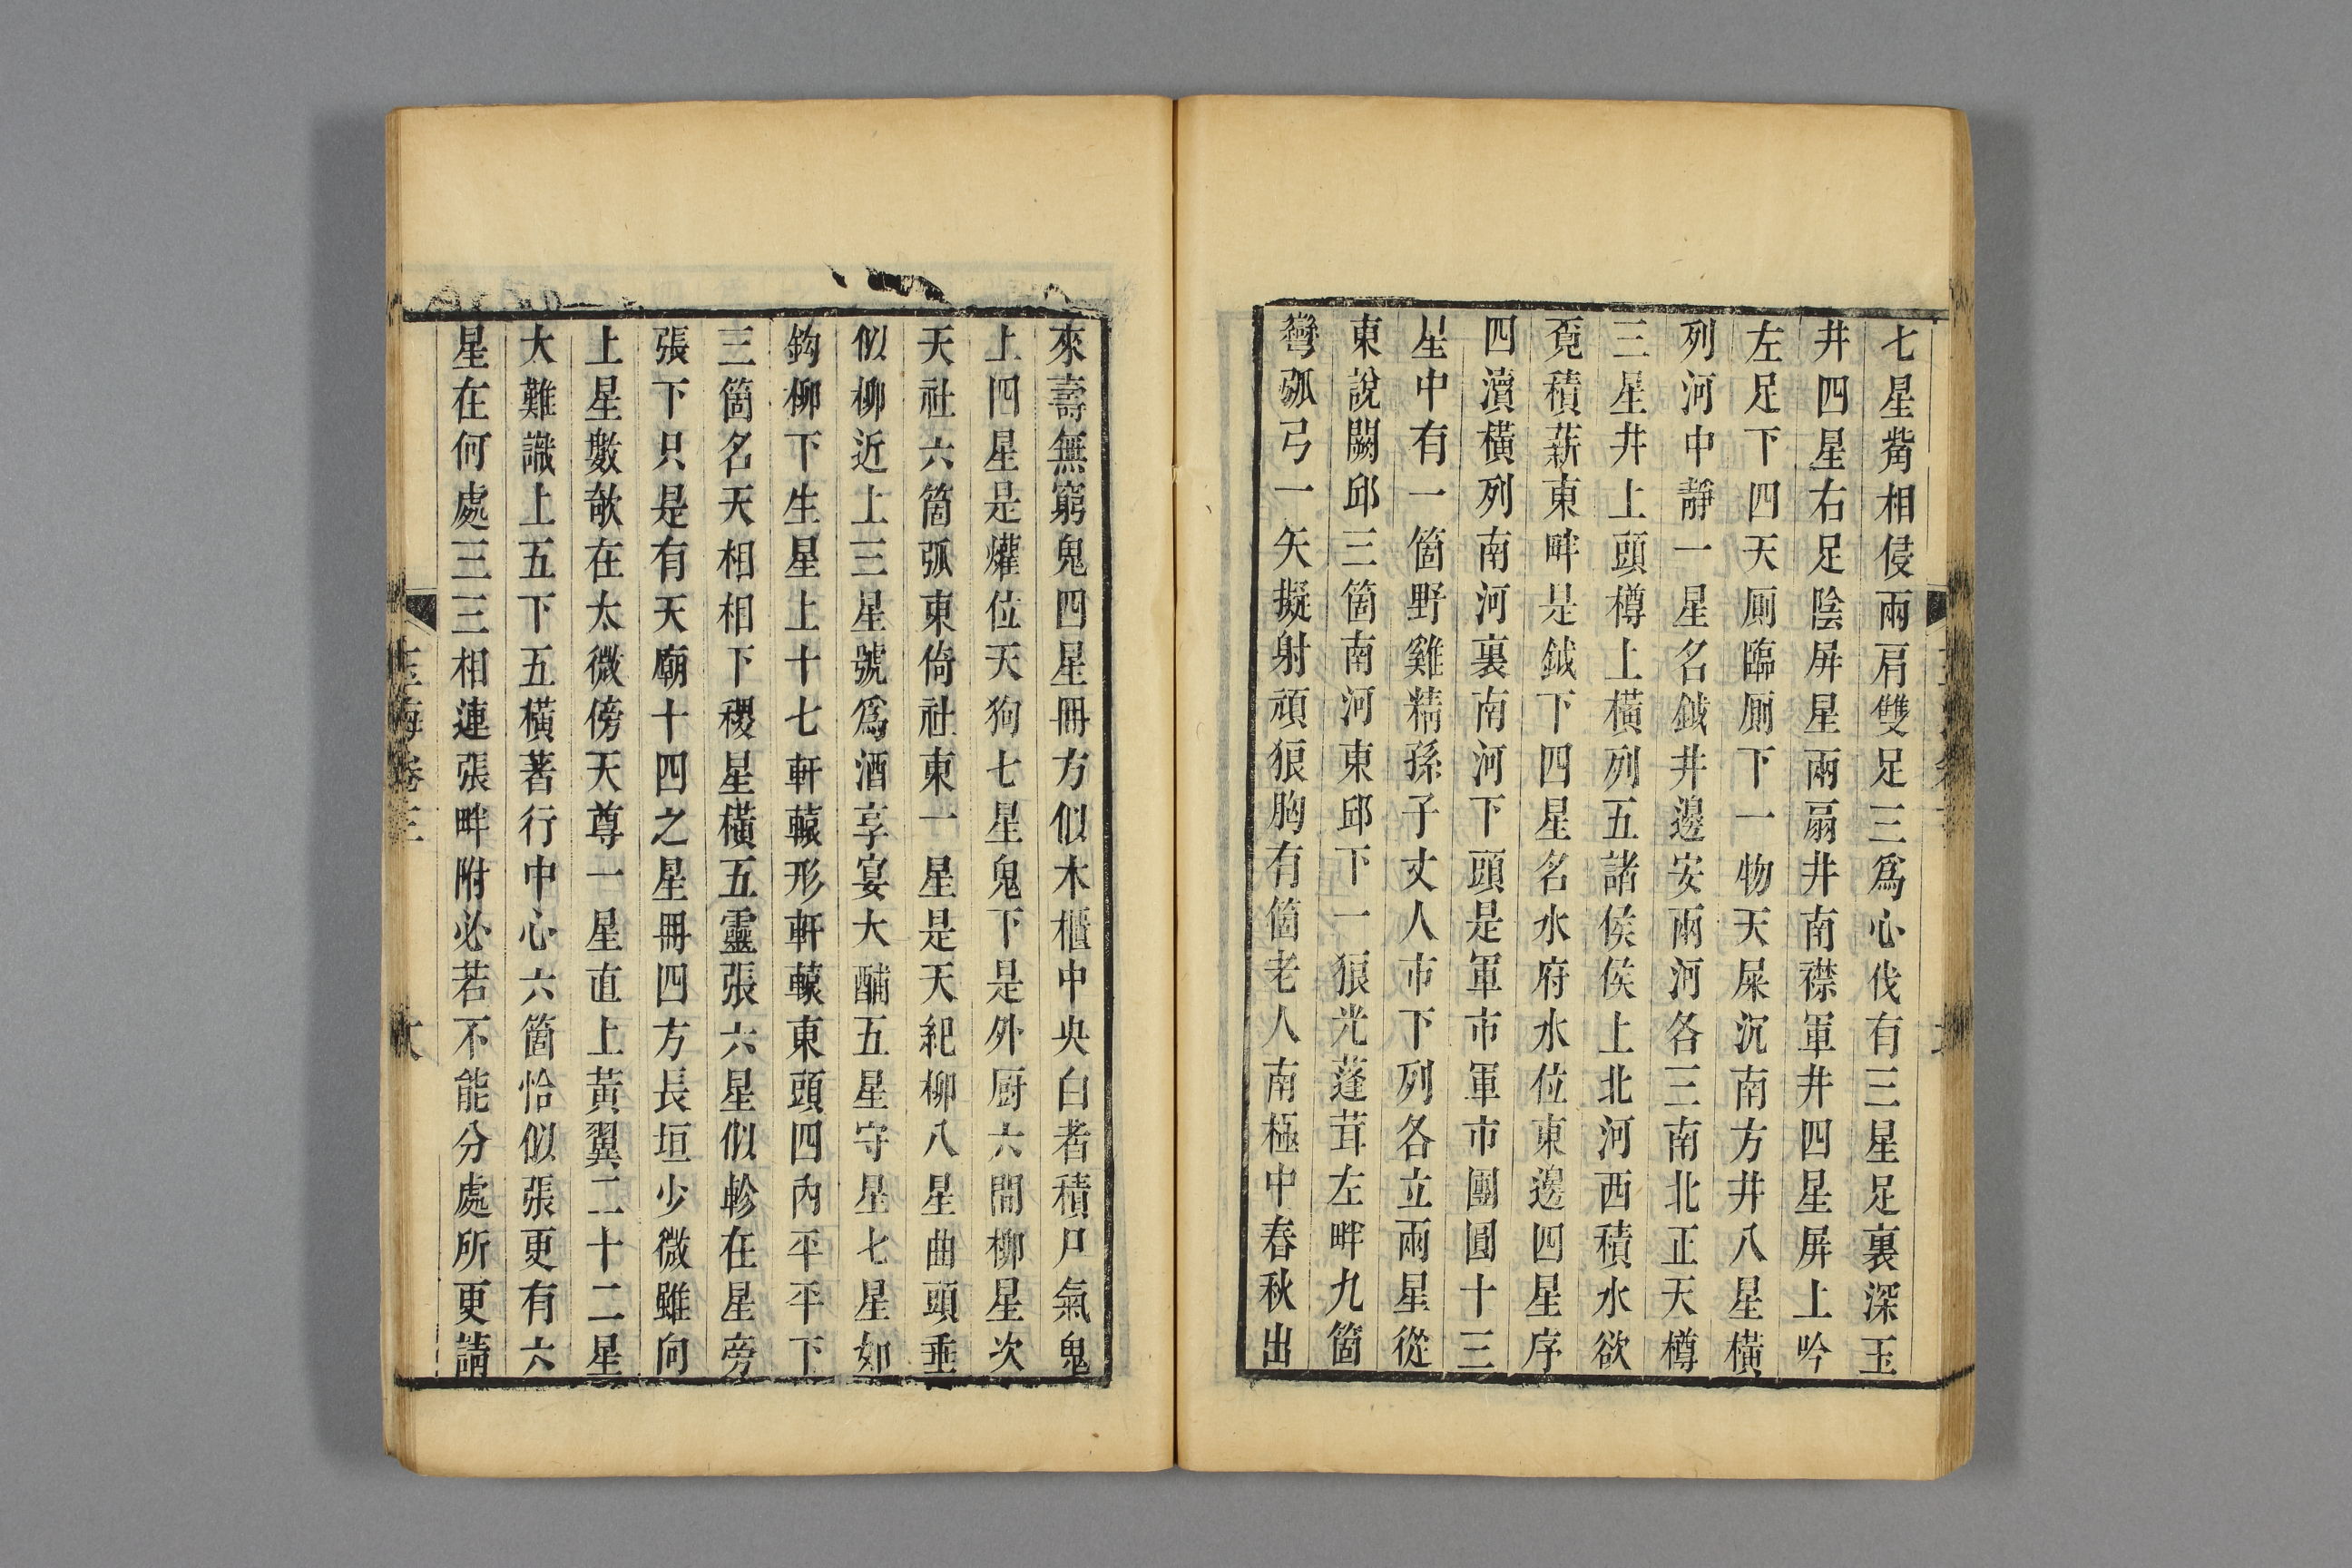 七星觜相侵兩肩雙足三爲心伐有三星足裏深玉
井四星右足陰屏星兩扇井南襟軍井四星屏上吟
左足下四天厠臨厠下一物天屎沉南方井八星橫
列河中靜一星名鉞井邊安兩河各三南北正天樽
三星井上頭樽上橫列五諸侯侯上北河西積水欲
覓積薪東畔是鉞下四星名水府水位東邊四星序
四瀆橫列南河裏南河下頭是軍市軍市團圓十三
星中有一箇野雞精孫子丈人市下列各立兩星從
東說闕邱三箇南河東邱下一狼光蓬茸左畔九箇
彎弧弓一矢擬射頑狼胸有箇老人南極中春秋出
來壽無窮鬼四星冊方似木櫃中央白者積尸氣鬼
上四星是爟位天狗七星鬼下是外厨六間柳星次
天社六箇弧東倚社東一星是天紀柳八星曲頭垂
似柳近上三星號爲酒享宴大酺五星守星七星如
鈎柳下生星上十七軒轅形軒轅東頭四內平平下
三箇名天相相下稷星橫五靈張六星似軫在星旁
張下只是有天廟十四之星冊四方長垣少微雖向
上星數欹在太微傍天尊一星直上黃翼二十二星
大難識上五下五橫著行中心六箇恰似張更有六
星在何處三三相連張畔附必若不能分處所更請
玉海卷三